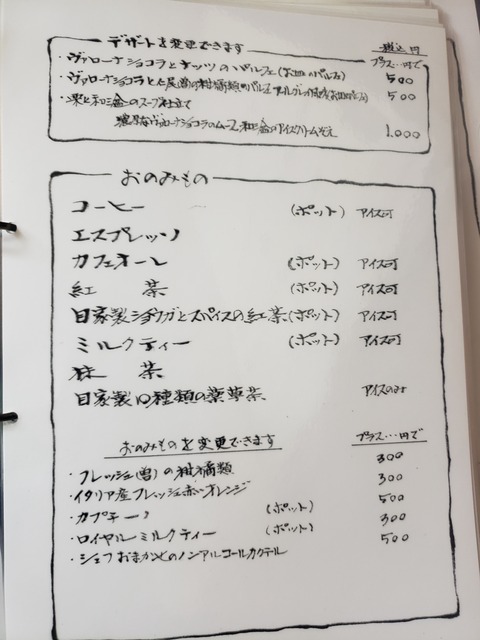 デザートを変更できます 税込 円
プラス…円で
・ヴァローナショコラとナッツのパルフェ(お皿のパルフェ) 500
・ヴァローナショコラと 500
・栗と和三盆のスープ仕立て
濃厚なヴァローナショコラのムース、和三盆のアイスクリーム 1,000
おのみもの
コーヒー (ポット) アイス可
エスプレッソ
カフェオーレ (ポット) アイス可
紅 茶 (ポット) アイス可
自家製ショウガとスパイスの紅茶(ポット) アイス可
ミルクティー (ポット) アイス可
抹 茶
自家製10種類の薬草茶 アイスのみ
おのみものを変更できます プラス…円で
・フレッシュ(雪)の柑橘類 300
・イタリア産フレッシュ赤いオレンジ 300
・カプチーノ (ポット) 500
・ロイヤルミルクティー (ポット) 300
・シェフおまかせのノンアルコールカクテル 500